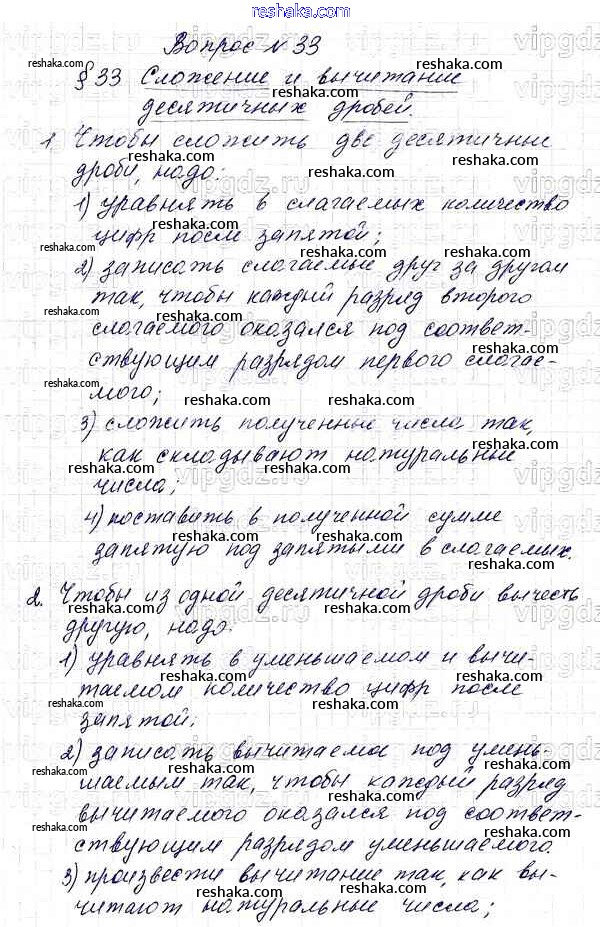 reshaka.com
Вопрос № 33
§ 33 Сложение и вычитание
десятичных дробей.
1 Чтобы сложить две десятичные
дроби, надо:
1) уравнять в слагаемых количество
цифр после запятой;
2) записать слагаемые друг за другом
так, чтобы каждый разряд второго
слагаемого оказался под соответ-
ствующим разрядом первого слагае-
мого;
3) сложить полученные числа так,
как складывают натуральные
числа;
4) поставить в полученной сумме
запятую под запятыми в слагаемых.
2. Чтобы из одной десятичной дроби вычесть
другую, надо:
1) уравнять в уменьшаемом и вычи-
таемом количество цифр после
запятой;
2) записать вычитаемое под умень-
шаемым так, чтобы каждый разряд
вычитаемого оказался под соответ-
ствующим разрядом уменьшаемого.
3) произвести вычитание так, как вы-
читают натуральные числа;